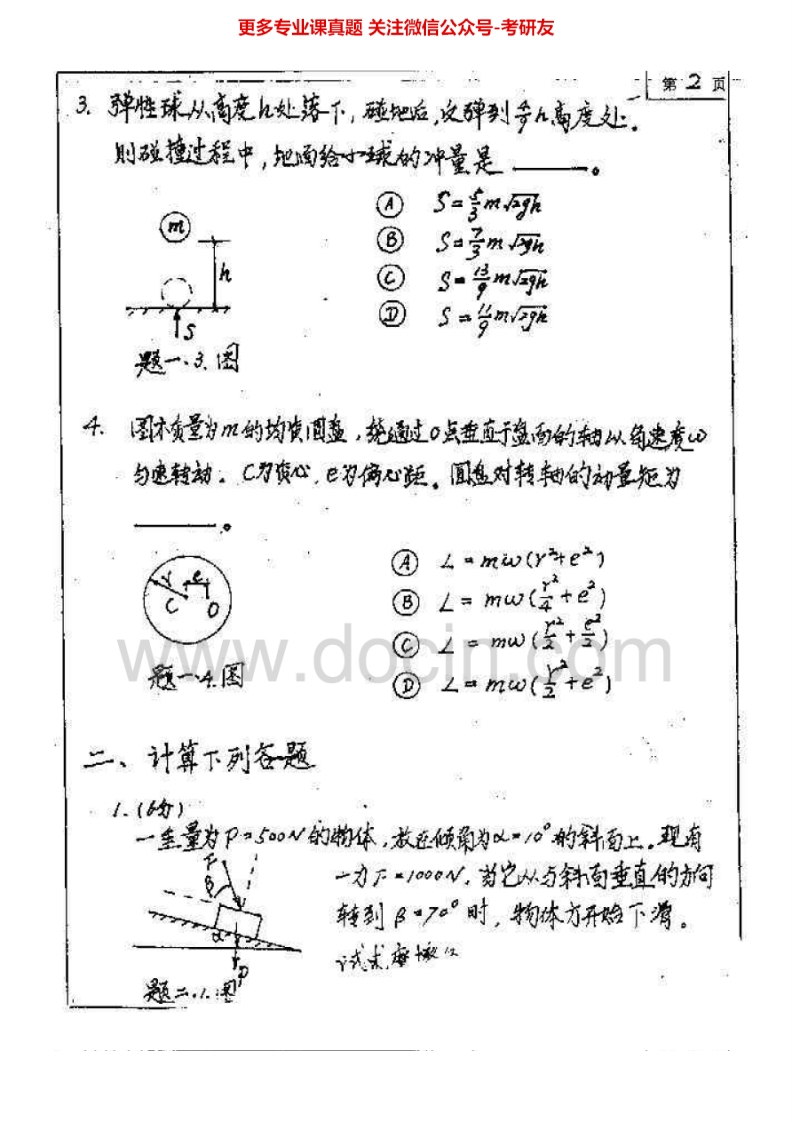 更多专业课真题 关注微信公众号-考研友
第 2 页
3. 弹性球从高度h处落下，碰地后，反弹到 4/9 h 高度处。
则碰撞过程中，地面给小球的冲量是 ______。
m
h
S
Ⓐ S = 5/3 m√2gh
Ⓑ S = 7/3 m√2gh
Ⓒ S = 13/9 m√2gh
Ⓓ S = 11/9 m√2gh
题一.3.图
4. 图示质量为m的均质圆盘，绕通过O点垂直于盘面的轴以角速度ω
匀速转动。C为质心，e为偏心距。圆盘对转轴的动量矩为
______。
r e
C O
Ⓐ L = mω(r²+e²)
Ⓑ L = mω(r²/4+e²)
Ⓒ L = mω(r²/2+e²/2)
Ⓓ L = mω(r²/2+e²)
www.docin.com
题一.4.图
二、计算下列各题
1.(6分)
一重量为P=500N的物体，放在倾角为α=10°的斜面上。现有
一力F=1000N，当它从与斜面垂直的方向
转到β=70°时，物体方开始下滑。
试求摩擦
F
β
α
P
题二.1.图